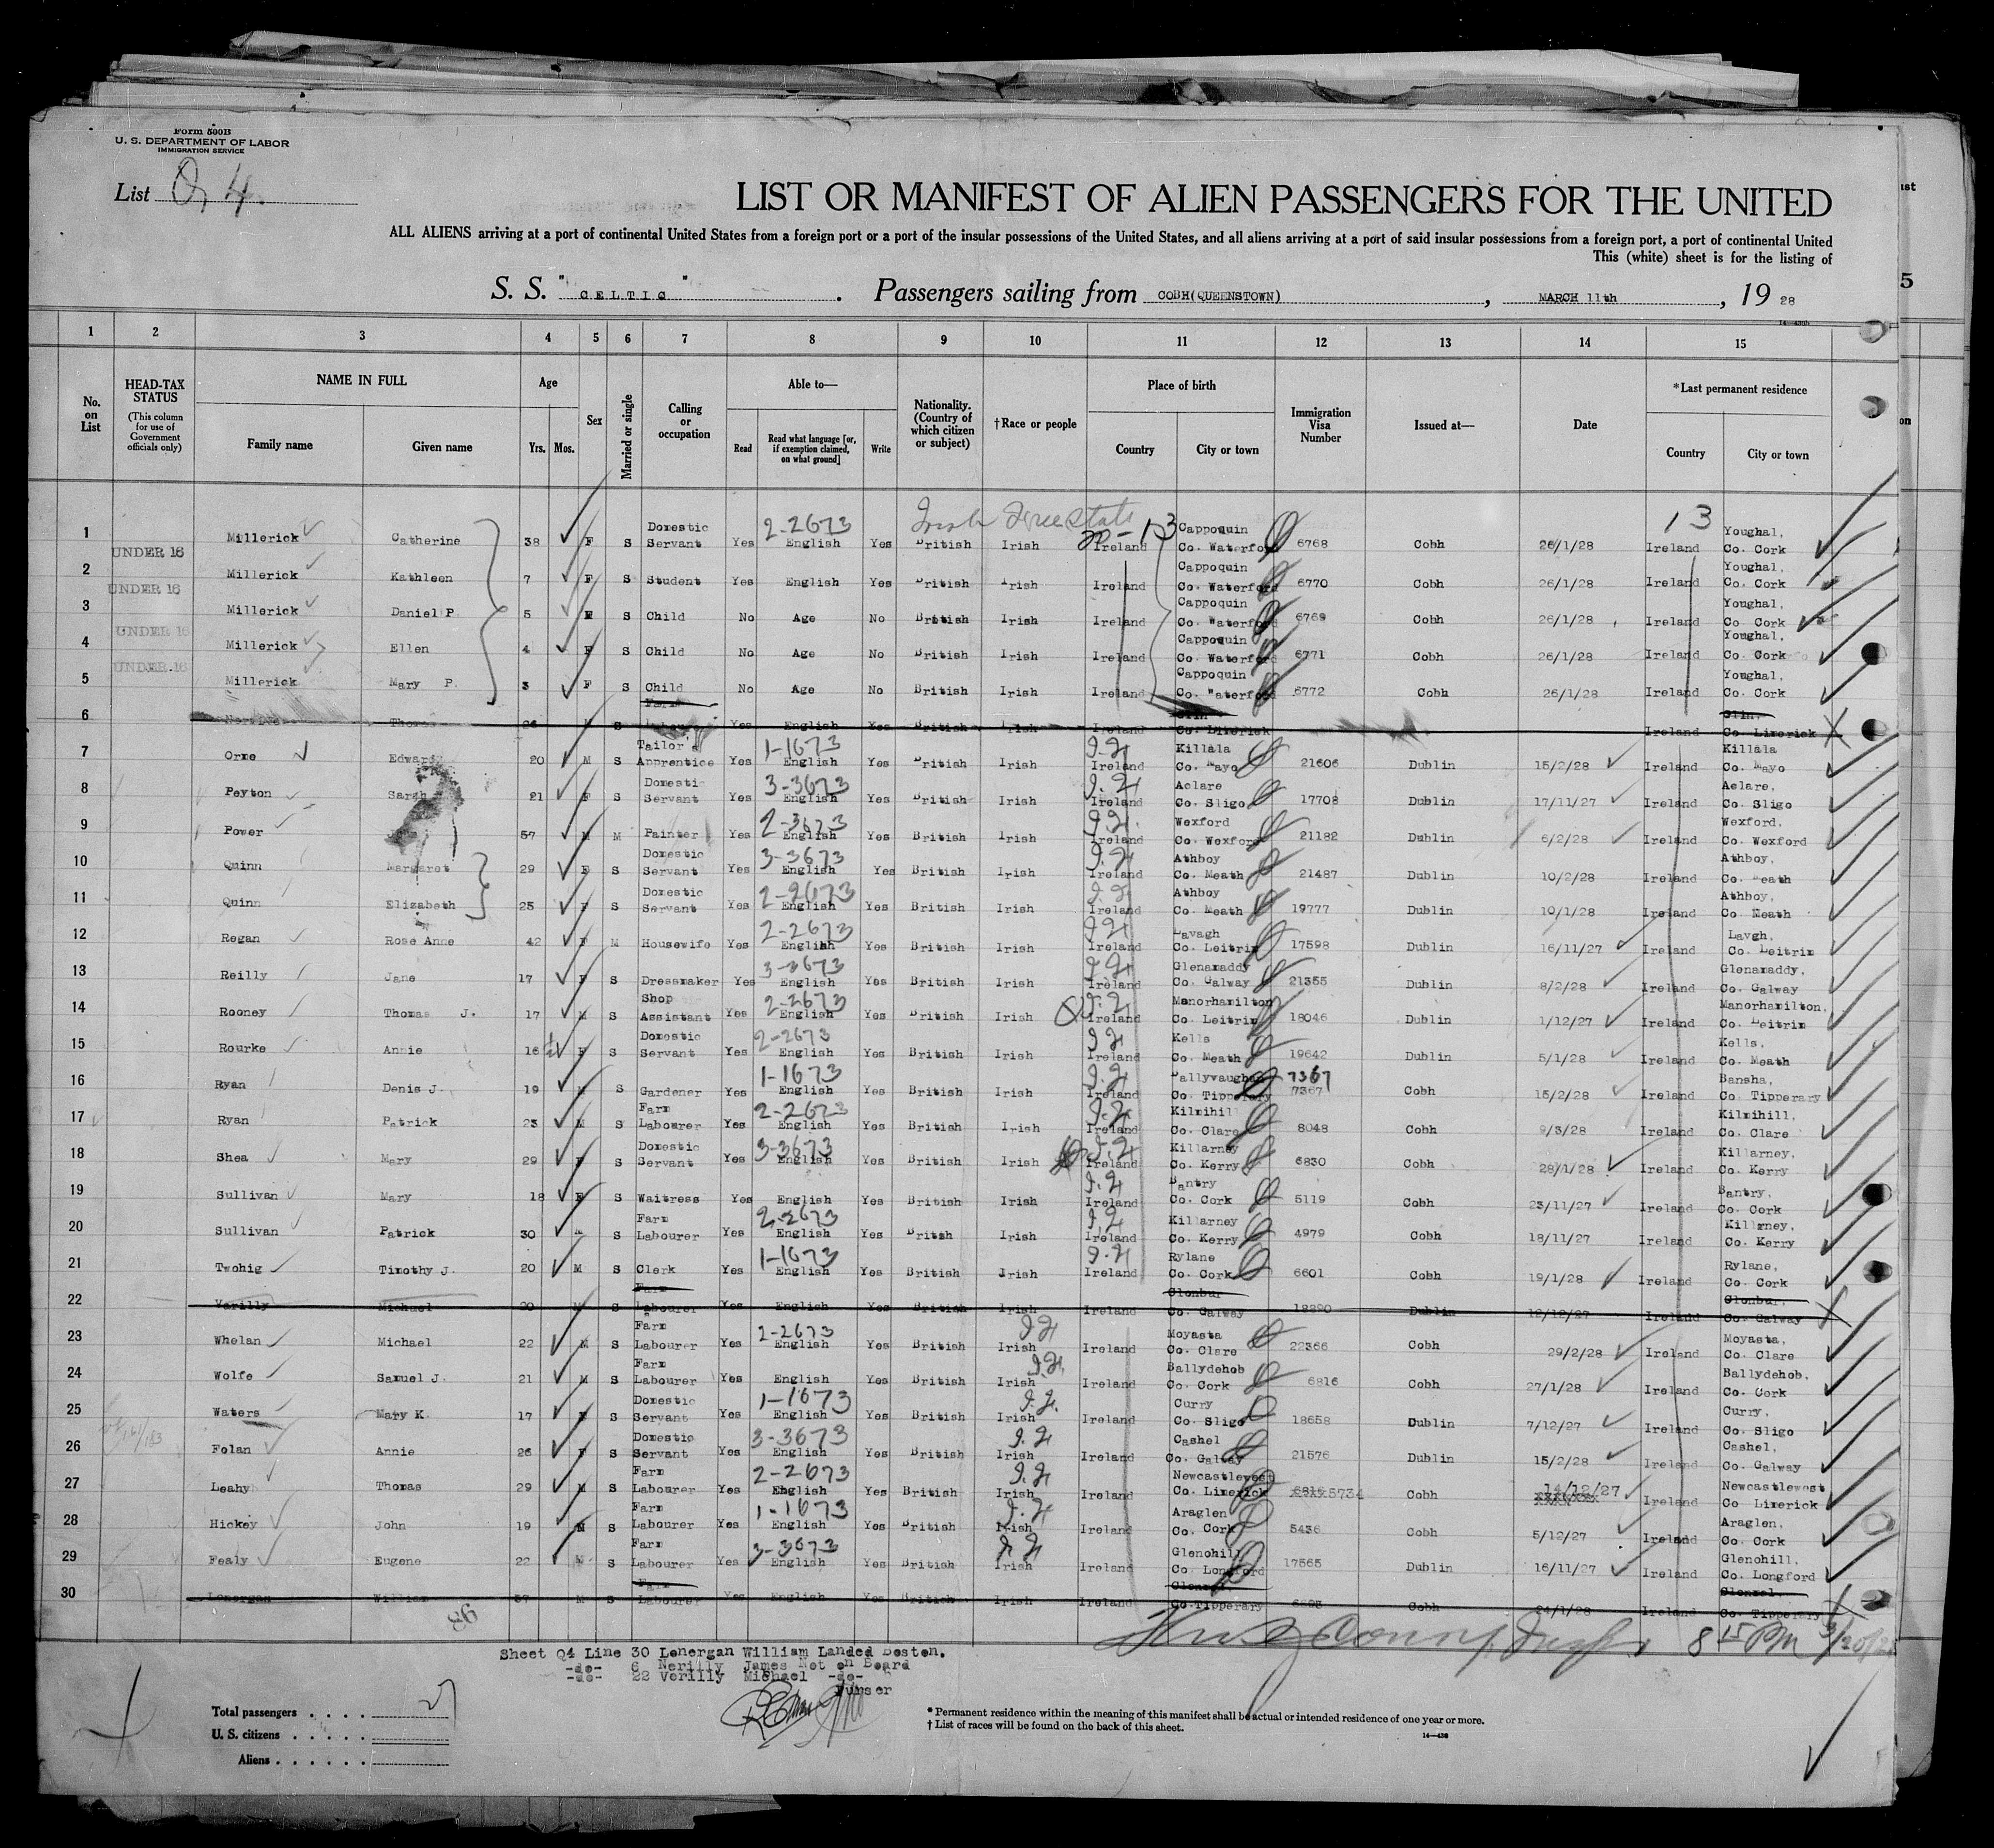 Form 500B
U. S. DEPARTMENT OF LABOR
IMMIGRATION SERVICE
List Q, 4.
LIST OR MANIFEST OF ALIEN PASSENGERS FOR THE UNITED
ALL ALIENS arriving at a port of continental United States from a foreign port or a port of the insular possessions of the United States, and all aliens arriving at a port of said insular possessions from a foreign port, a port of continental United
This (white) sheet is for the listing of
S. S. " CELTIC " . Passengers sailing from COBH(QUEENSTOWN) , MARCH 11th , 19 28
1 2 3 4 5 6 7 8 9 10 11 12 13 14 15
No. on List
HEAD-TAX STATUS (This column for use of Government officials only)
NAME IN FULL
Family name Given name
Age Yrs. Mos.
Sex
Married or single
Calling or occupation
Able to—
Read Read what language [or, if exemption claimed, on what ground] Write
Nationality. (Country of which citizen or subject)
†Race or people
Place of birth
Country City or town
Immigration Visa Number
Issued at—
Date
*Last permanent residence
Country City or town
Irish Free State
13
1 UNDER 16 Millerick Catherine 38 F S Domestic Servant Yes 2-2673 English Yes British Irish Ireland Cappoquin Co. Waterford 6768 Cobh 26/1/28 Ireland Youghal, Co. Cork
2 UNDER 16 Millerick Kathleen 7 F S Student Yes English Yes British Irish Ireland Cappoquin Co. Waterford 6770 Cobh 26/1/28 Ireland Youghal, Co. Cork
3 UNDER 16 Millerick Daniel P. 5 M S Child No Age No British Irish Ireland Cappoquin Co. Waterford 6769 Cobh 26/1/28 Ireland Youghal, Co. Cork
4 UNDER 16 Millerick Ellen 4 F S Child No Age No British Irish Ireland Cappoquin Co. Waterford 6771 Cobh 26/1/28 Ireland Youghal, Co. Cork
5 Millerick Mary P. 3 F S Child No Age No British Irish Ireland Cappoquin Co. Waterford 6772 Cobh 26/1/28 Ireland Youghal, Co. Cork
6 26 M S Farm Yes English Yes British Irish Ireland Glin Co. Limerick Ireland Glin, Co. Limerick
7 Orme Edward 20 M S Tailor's Apprentice Yes 1-1673 English Yes British Irish Ireland Killala Co. Mayo 21606 Dublin 15/2/28 Ireland Killala Co. Mayo
8 Peyton Sarah 21 F S Domestic Servant Yes 3-3673 English Yes British Irish Ireland Aclare Co. Sligo 17708 Dublin 17/11/27 Ireland Aclare, Co. Sligo
9 Power 57 M M Painter Yes 2-3673 English Yes British Irish Ireland Wexford Co. Wexford 21182 Dublin 6/2/28 Ireland Wexford, Co. Wexford
10 Quinn Margaret 29 F S Domestic Servant Yes 3-3673 English Yes British Irish Ireland Athboy Co. Meath 21487 Dublin 10/2/28 Ireland Athboy, Co. Meath
11 Quinn Elizabeth 25 F S Domestic Servant Yes 2-2673 English Yes British Irish Ireland Athboy Co. Meath 19777 Dublin 10/1/28 Ireland Athboy, Co. Meath
12 Regan Rose Anne 42 F M Housewife Yes 2-2673 English Yes British Irish Ireland Lavagh Co. Leitrim 17598 Dublin 16/11/27 Ireland Lavgh, Co. Leitrim
13 Reilly Jane 17 F S Dressmaker Yes 3-3673 English Yes British Irish Ireland Glenamaddy Co. Galway 21355 Dublin 8/2/28 Ireland Glenamaddy, Co. Galway
14 Rooney Thomas J. 17 M S Shop Assistant Yes 2-2673 English Yes British Irish Ireland Manorhamilton Co. Leitrim 18046 Dublin 1/12/27 Ireland Manorhamilton, Co. Leitrim
15 Rourke Annie 16 F S Domestic Servant Yes 2-2673 English Yes British Irish Ireland Kells Co. Meath 19642 Dublin 5/1/28 Ireland Kells, Co. Meath
16 Ryan Denis J. 19 M S Gardener Yes 1-1673 English Yes British Irish Ireland Ballyvaughan Co. Tipperary 7367 7367 Cobh 15/2/28 Ireland Bansha, Co. Tipperary
17 Ryan Patrick 23 M S Farm Labourer Yes 2-2673 English Yes British Irish Ireland Kilmihill Co. Clare 8048 Cobh 9/3/28 Ireland Kilmihill, Co. Clare
18 Shea Mary 29 F S Domestic Servant Yes 3-3673 English Yes British Irish Ireland Killarney Co. Kerry 6830 Cobh 28/1/28 Ireland Killarney, Co. Kerry
19 Sullivan Mary 18 F S Waitress Yes English Yes British Irish Ireland Bantry Co. Cork 5119 Cobh 23/11/27 Ireland Bantry, Co. Cork
20 Sullivan Patrick 30 M S Farm Labourer Yes 2-2673 English Yes Britsh Irish Ireland Killarney Co. Kerry 4979 Cobh 18/11/27 Ireland Killarney, Co. Kerry
21 Twohig Timothy J. 20 M S Clerk Yes 1-1673 English Yes British Irish Ireland Rylane Co. Cork 6601 Cobh 19/1/28 Ireland Rylane, Co. Cork
22 Varilly Michael 20 M S Farm Labourer Yes English Yes British Irish Ireland Clonbur Co. Galway 18290 Dublin 12/12/27 Ireland Clonbur, Co. Galway
23 Whelan Michael 22 M S Farm Labourer Yes 2-2673 English Yes British Irish Ireland Moyasta Co. Clare 22366 Cobh 29/2/28 Ireland Moyasta, Co. Clare
24 Wolfe Samuel J. 21 M S Farm Labourer Yes English Yes British Irish Ireland Ballydehob Co. Cork 6816 Cobh 27/1/28 Ireland Ballydehob, Co. Cork
25 Waters Mary K. 17 F S Domestic Servant Yes 1-1673 English Yes British Irish Ireland Curry Co. Sligo 18658 Dublin 7/12/27 Ireland Curry, Co. Sligo
26 Folan Annie 26 F S Domestic Servant Yes 3-3673 English Yes British Irish Ireland Cashel Co. Galway 21576 Dublin 15/2/28 Ireland Cashel, Co. Galway
27 Leahy Thomas 29 M S Farm Labourer Yes 2-2673 English Yes British Irish Ireland Newcastlewest Co. Limerick 5734 Cobh 14/12/27 Ireland Newcastlewest Co Limerick
28 Hickey John 19 M S Farm Labourer Yes 1-1673 English Yes British Irish Ireland Araglen Co. Cork 5436 Cobh 5/12/27 Ireland Araglen, Co. Cork
29 Fealy Eugene 22 M S Farm Labourer Yes 3-3673 English Yes British Irish Ireland Glenohill Co Longford 17565 Dublin 16/11/27 Ireland Glenohill, Co. Longford
30 Lonergan William 37 M S Farm Labourer Yes English Yes British Irish Ireland Clonmel Co Tipperary Cobh 24/1/28 Ireland Clonmel. Co. Tipperary
98
8 15 PM
Sheet Q4 Line 30 Lonergan William Landed Boston.
-do- 6 Nerilly James Not on Board
-do- 22 Verilly Michael -do-
Purser
Total passengers . . . . 27
U. S. citizens . . . . .
Aliens . . . . . .
* Permanent residence within the meaning of this manifest shall be actual or intended residence of one year or more.
† List of races will be found on the back of this sheet.
14—436